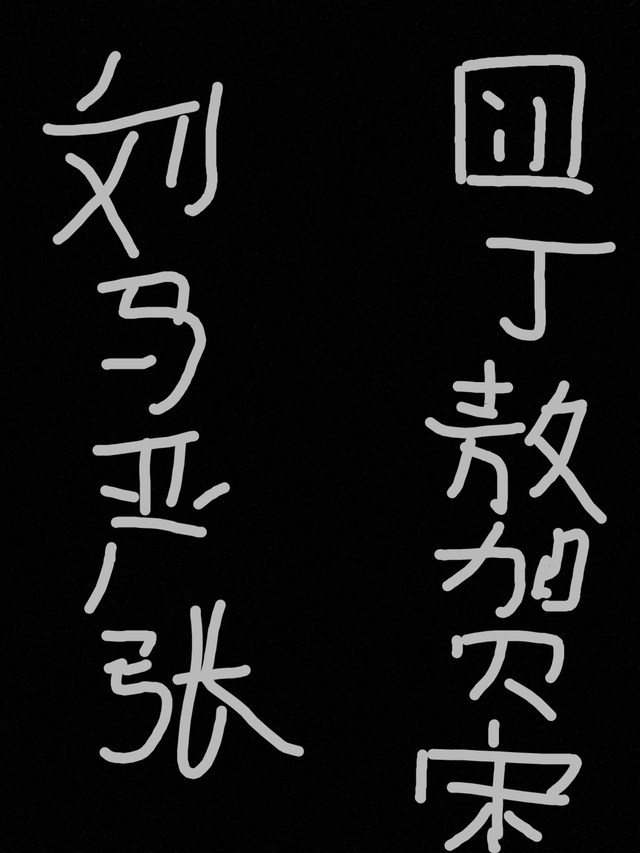 丁敖贺宋
刘马严张